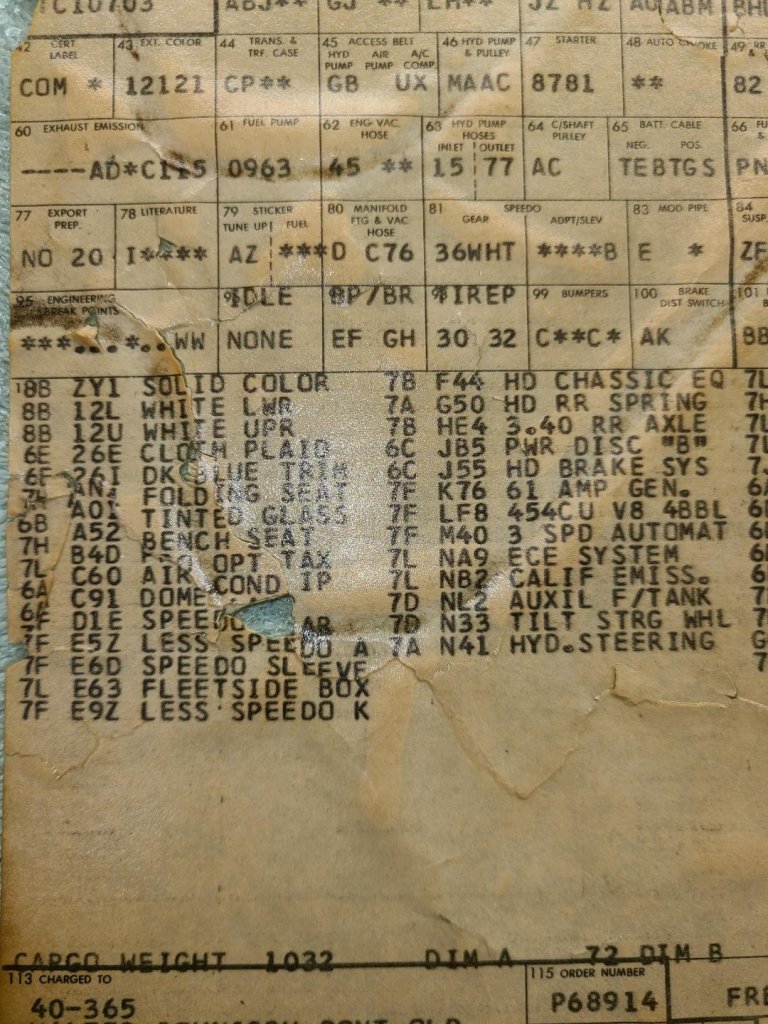 TC10703 ABJ** GJ ** ABM
42 CERT LABEL 43 EXT. COLOR 44 TRANS. & TRF. CASE 45 ACCESS BELT HYD PUMP AIR PUMP A/C COMP. 46 HYD PUMP & PULLEY 47 STARTER 48 AUTO CHOKE 49 RR
COM * 12121 CP** GB UX MAAC 8781 ** 82
60 EXHAUST EMISSION 61 FUEL PUMP 62 ENG-VAC. HOSE 63 HYD PUMP HOSES INLET OUTLET 64 C/SHAFT PULLEY 65 BATT. CABLE NEG. POS. 66
----AD*C115 0963 45 ** 15 77 AC TEBTGS PN
77 EXPORT PREP. 78 LITERATURE 79 STICKER TUNE UP FUEL 80 MANIFOLD FTG & VAC HOSE 81 SPEEDO GEAR ADPT/SLEV 83 MOD PIPE 84 SUSP.
NO 20 I**** AZ ***D C76 36WHT ****B E * ZF
95 ENGINEERING BREAK POINTS IDLE BP/BR TIREP 99 BUMPERS 100 BRAKE DIST SWITCH 101
***...*..WW NONE EF GH 30 32 C**C* AK BB
8B ZY1 SOLID COLOR 7B F44 HD CHASSIC EQ
8B 12L WHITE LWR 7A G50 HD RR SPRING
8B 12U WHITE UPR 7B HE4 3.40 RR AXLE
6E 26E CLOTH PLAID 6C JB5 PWR DISC "B"
6F 26I DK BLUE TRIM 6C J55 HD BRAKE SYS
AN FOLDING SEAT 7F K76 61 AMP GEN.
6B A01 TINTED GLASS 7F LF8 454CU V8 4BBL
7H A52 BENCH SEAT 7F M40 3 SPD AUTOMAT
7L B4D OPT TAX 7L NA9 ECE SYSTEM
6A C60 AIR COND IP 7L NB2 CALIF EMISS.
C91 DOME 7D NL2 AUXIL F/TANK
7F D1E SPEEDO 7D N33 TILT STRG WHL
7F E5Z LESS SPEEDO A 7A N41 HYD.STEERING
7F E6D SPEEDO SLEEVE
7L E63 FLEETSIDE BOX
7F E9Z LESS SPEEDO K
CARGO WEIGHT 1032 DIM A 72 DIM B
113 CHARGED TO 115 ORDER NUMBER
40-365 P68914 FRE